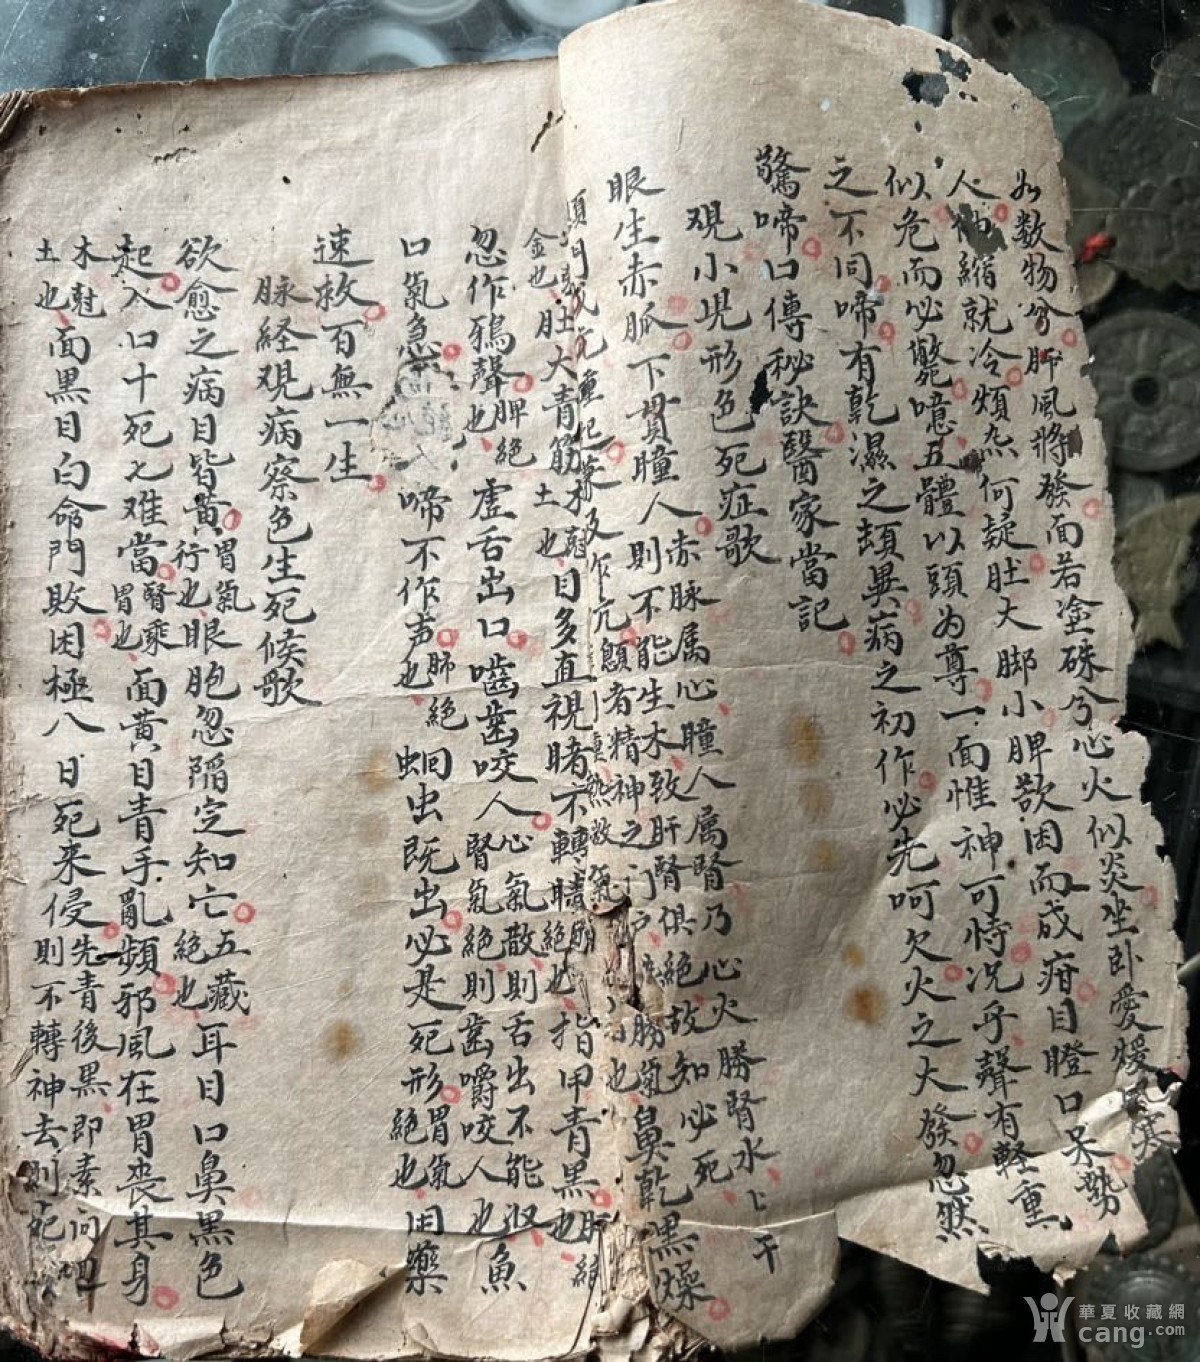 如数物兮肝風將發面若塗硃兮心火似炎坐卧愛煖風寒
人神縮就冷煩炁何疑肚大脚小脾欲困而成疳目瞪口呆勢
似危而必斃噫五體以頭为尊一面惟神可恃况乎聲有軽重
之不同啼有乾濕之頡異病之初作必先呵欠火之大發忽然
驚啼口傳秘訣醫家當記
觀小児形色死症歌
眼生赤脈下貫瞳人赤脉属心瞳人属腎乃心火勝腎水乚干
則不能生木致肝腎俱絕故知必死鼻乾黑燥
金也肚大青筋土也目多直視睹不轉睛絕也指甲青黑肝絕也
忽作鴉聲脾絕也虚舌出口心氣散則舌出不能収嚙歯咬人腎氣絕則歯嚼咬人也魚
口氣急啼不作声肺絕也蛔虫既出必是死形胃氣絕也用藥
速救百無一生
脉経覌病察色生死候歌
欲愈之病目眥黄胃氣行也眼胞忽陷定知亡五藏絕也耳目口鼻黑色
起入口十死七难當腎乘胃也面黄目青手亂頻邪風在胃喪其身
木尅土也面黑目白命門敗困極八日死来侵先青後黑即素问
則不轉神去則死
華夏收藏網
cang.com